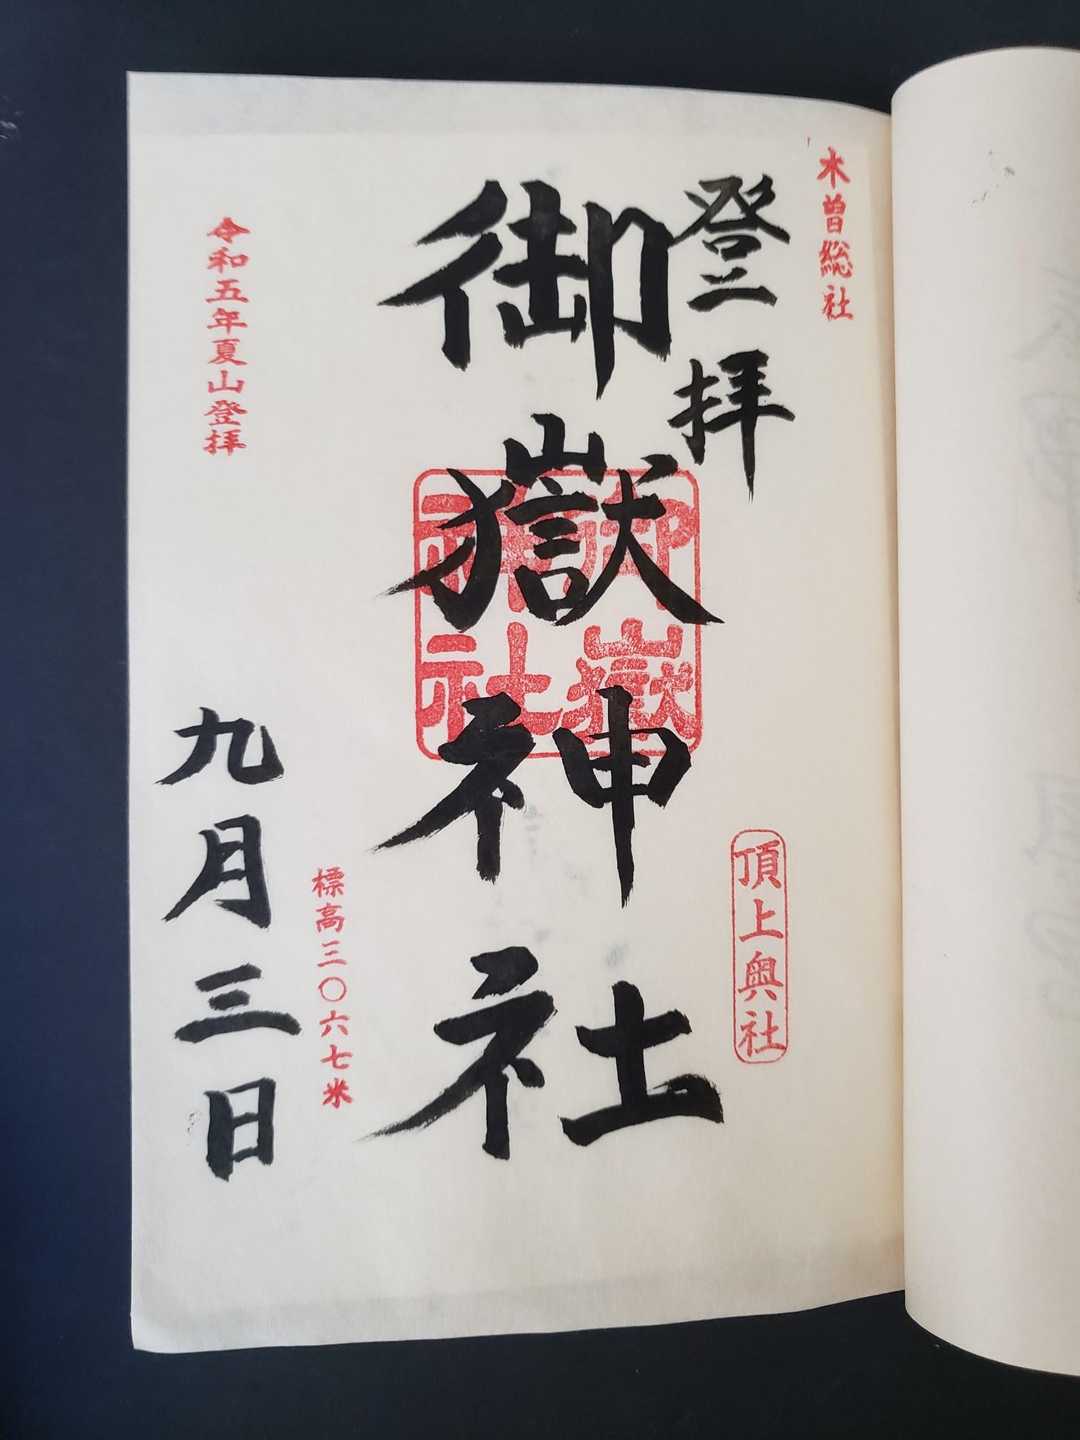 木曽総社
登拝
頂上奥社
御嶽神社
御嶽
神社
標高三〇六七米
令和五年夏山登拝
九月三日